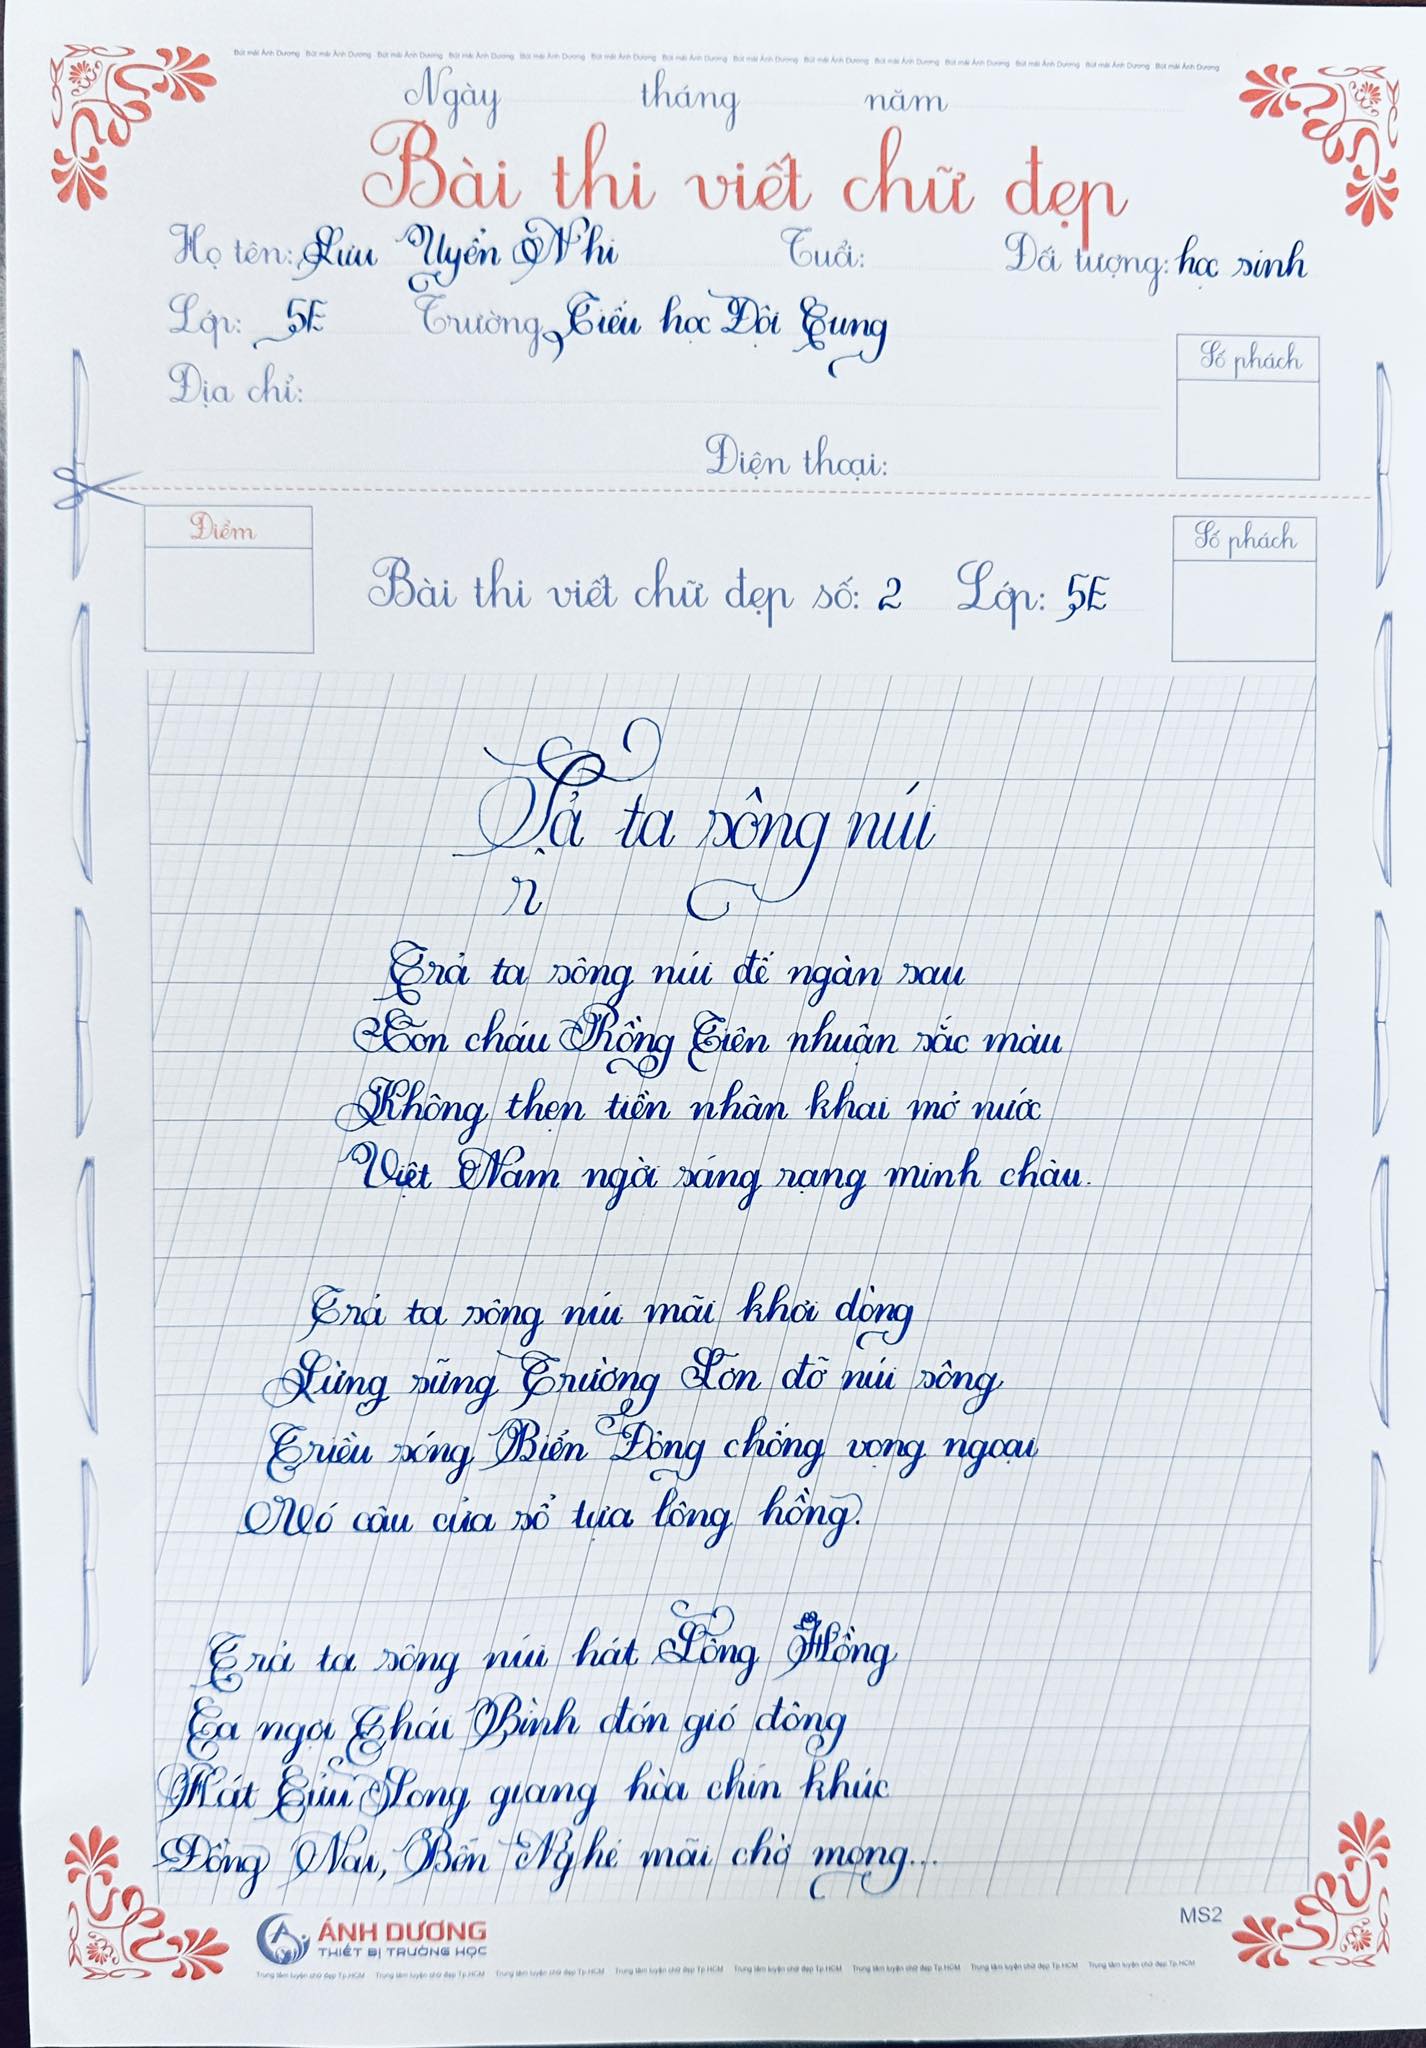 Bút mài Ánh Dương Bút mài Ánh Dương Bút mài Ánh Dương Bút mài Ánh Dương Bút mài Ánh Dương Bút mài Ánh Dương Bút mài Ánh Dương Bút mài Ánh Dương Bút mài Ánh Dương Bút mài Ánh Dương Bút mài Ánh Dương Bút mài Ánh Dương Bút mài Ánh Dương Bút mài Ánh Dương
Ngày tháng năm
Bài thi viết chữ đẹp
Họ tên: Lưu Uyển Nhi Tuổi: Đối tượng: học sinh
Lớp: 5E Trường Tiểu học Đội Cung
Địa chỉ:
Số phách
Điện thoại:
Điểm
Số phách
Bài thi viết chữ đẹp số: 2 Lớp: 5E
Tả ta sông núi
r
Trả ta sông núi để ngàn sau
Con cháu Rồng Tiên nhuận sắc màu
Không thẹn tiền nhân khai mở nước
Việt Nam ngời sáng rạng minh châu.
Trả ta sông núi mãi khơi dòng
Lừng sững Trường Sơn đỡ núi sông
Triều sóng Biển Đông chống vọng ngoại
Vó câu cửa sổ tựa lông hồng.
Trả ta sông núi hát Lông Hồng
Ca ngợi Thái Bình đón gió đông
Hát Cửu Long giang hòa chín khúc
Đồng Nai, Bến Nghé mãi chờ mong...
ÁNH DƯƠNG
THIẾT BỊ TRƯỜNG HỌC
MS2
Trung tâm luyện chữ đẹp Tp.HCM Trung tâm luyện chữ đẹp Tp.HCM Trung tâm luyện chữ đẹp Tp.HCM Trung tâm luyện chữ đẹp Tp.HCM Trung tâm luyện chữ đẹp Tp.HCM Trung tâm luyện chữ đẹp Tp.HCM Trung tâm luyện chữ đẹp Tp.HCM Trung tâm luyện chữ đẹp Tp.HCM